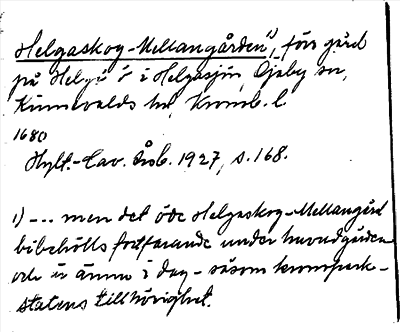 Helgaskog-Mellangården¹⁾, förr gård
på Helgö i Helgasjön, Öjaby sn,
Kinnevalds hd, Kronob. l.
1680
Hylt.-Cav. Årsb. 1927, s. 168.
1) --- men det öde Helgaskog-Mellangård
bibehölls fortfarande under huvudgården
och är ännu i dag - såsom kronopark-
statens tillhörighet.